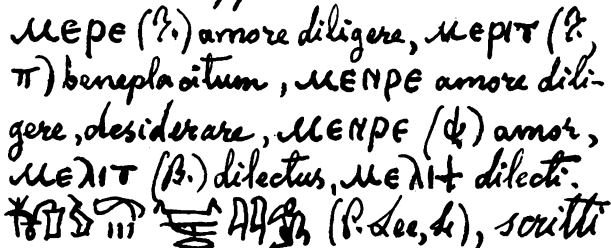 ⲙⲉⲣⲉ (?.) amore diligere, ⲙⲉⲣⲓⲧ (?,
π) beneplacitum, ⲙⲉⲛⲣⲉ amore dili-
gere, desiderare, ⲙⲉⲛⲣⲉ () amor,
ⲙⲉⲗⲓⲧ (β.) dilectus, ⲙⲉⲗⲓϯ dilecti.
(P. Lee, ), scritti